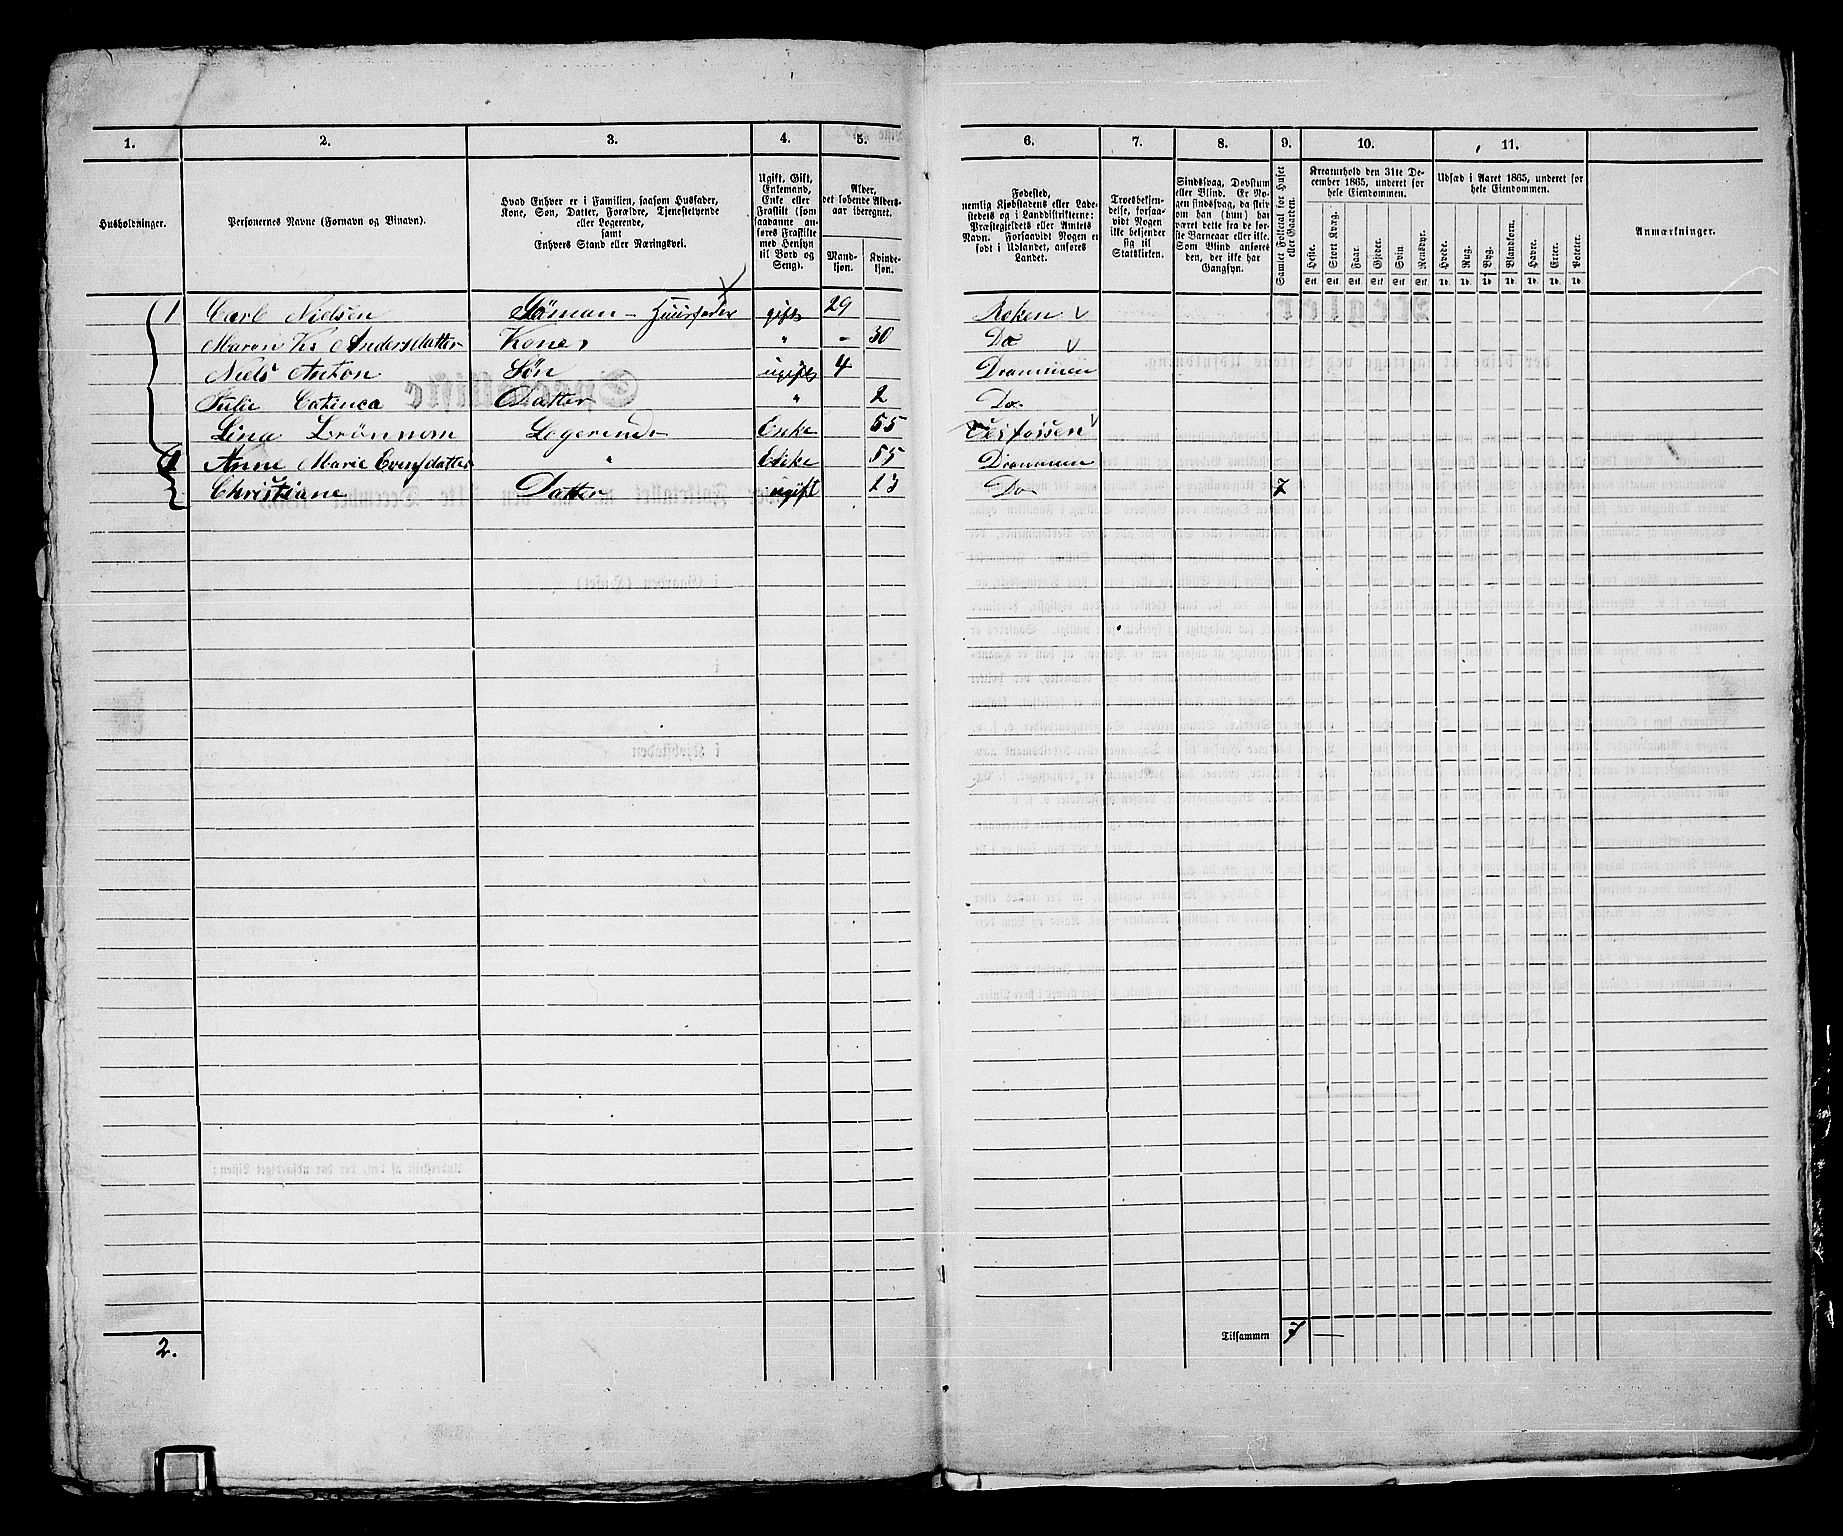 1. 2. 3. 4. 5. 6. 7. 8. 9. 10. 11.
Husholdninger.
Personernes Navne (Fornavn og Binavn).
Hvad Enhver er i Familien, saasom Husfader,
Kone, Søn, Datter, Forældre, Tjenestetyende
eller Logerende,
samt
Enhvers Stand eller Næringsvei.
Ugift, Gift,
Enkemand,
Enke eller
Fraskilt (som
saadanne an-
føres Fraskilte
med Hensyn
til Bord og
Seng).
Alder,
det løbende Alders-
aar iberegnet.
Mand-
kjøn.
Kvinde-
kjøn.
Fødested,
nemlig Kjøbstadens eller Lade-
stedets og i Landdistrikterne:
Præstegjeldets eller Amtets
Navn. Forsaavidt Nogen er
født i Udlandet, anføres
Landet.
Troesbekjen-
delse, forsaa-
vidt Nogen
ikke bekjender
sig til
Statskirken.
Sindssvag, Døvstum
eller Blind. Er No-
gen sindssvag, da skriv
om han (hun) har
været dette fra de før-
ste Barneaar eller ikke.
Som Blind anføres
den, der ikke har
Gangsyn.
Samlet Folketal for Huset
eller Gaarden.
Kreaturhold den 31te De-
cember 1865, underet for
hele Eiendommen.
Heste. Stort Kvæg. Faar. Gjeder. Svin Rensdyr.
Stk. Stk. Stk. Stk. Stk. Stk.
Udsæd i Aaret 1865, underet for
hele Eiendommen.
Hvede. Rug. Byg. Blandkorn. Havre. Erter. Poteter.
Td. Td. Td. Td. Td. Td. Td.
Anmærkninger.
1 Carl Nielsen Söman - Huusfader gift 29 Røken
Maren Ks Andersdatter Kone " - 30 Do
Niels Anton Søn ugift 4 Drammen
Julie Catinca Datter " 2 Do
Lina Logerende Enke 55
1 Anne Marie Evensdatter " Enke 55 Drammen
Christiane Datter ugift 13 Do 7
2. Tilsammen 7 —